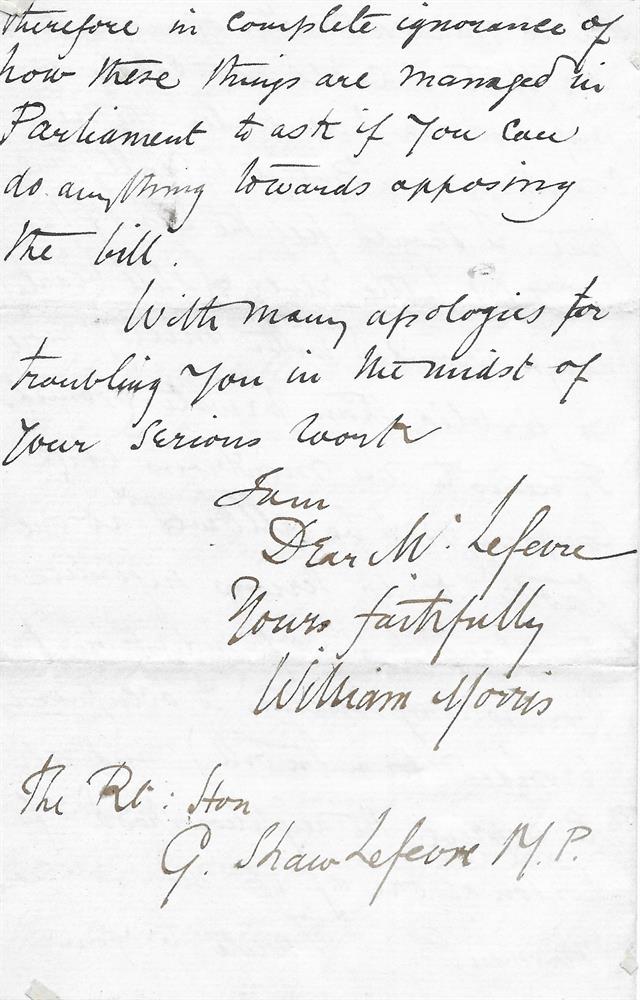 therefore in complete ignorance of
how these things are managed in
Parliament to ask if you can
do anything towards opposing
the bill.
With many apologies for
troubling you in the midst of
your serious work
I am
Dear Mr. Lefevre
Yours faithfully
William Morris
The Rt: Hon
G. Shaw Lefevre M.P.